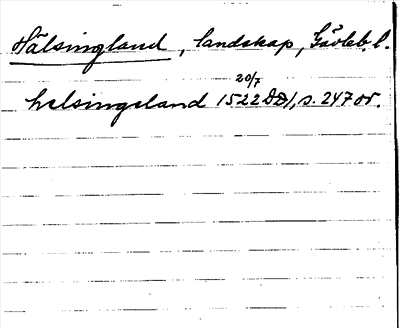 Hälsingland, landskap, Gävleb. l.
helsingeland 20/7 1522 DD1, s. 247 or.